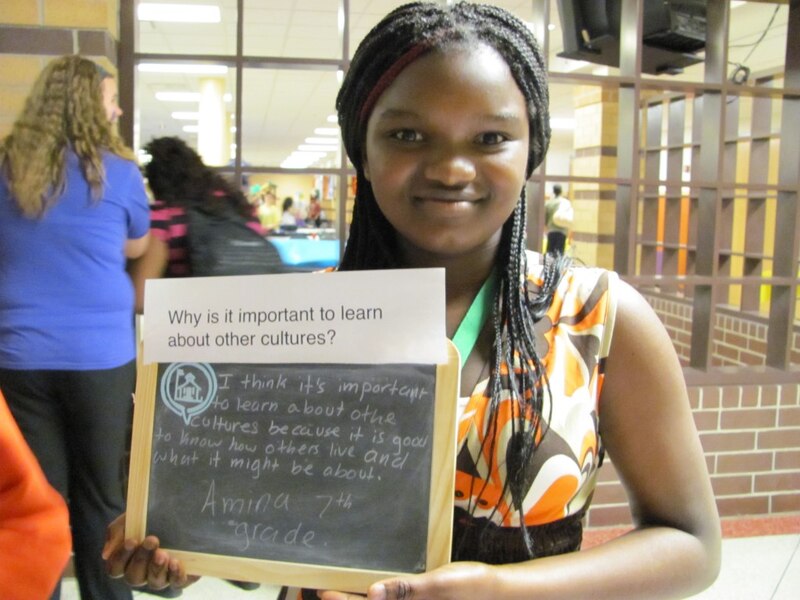 Why is it important to learn
about other cultures?
I think it's important
to learn about othe
cultures because it is good
to know how others live and
what it might be about.
Amina 7th
grade.